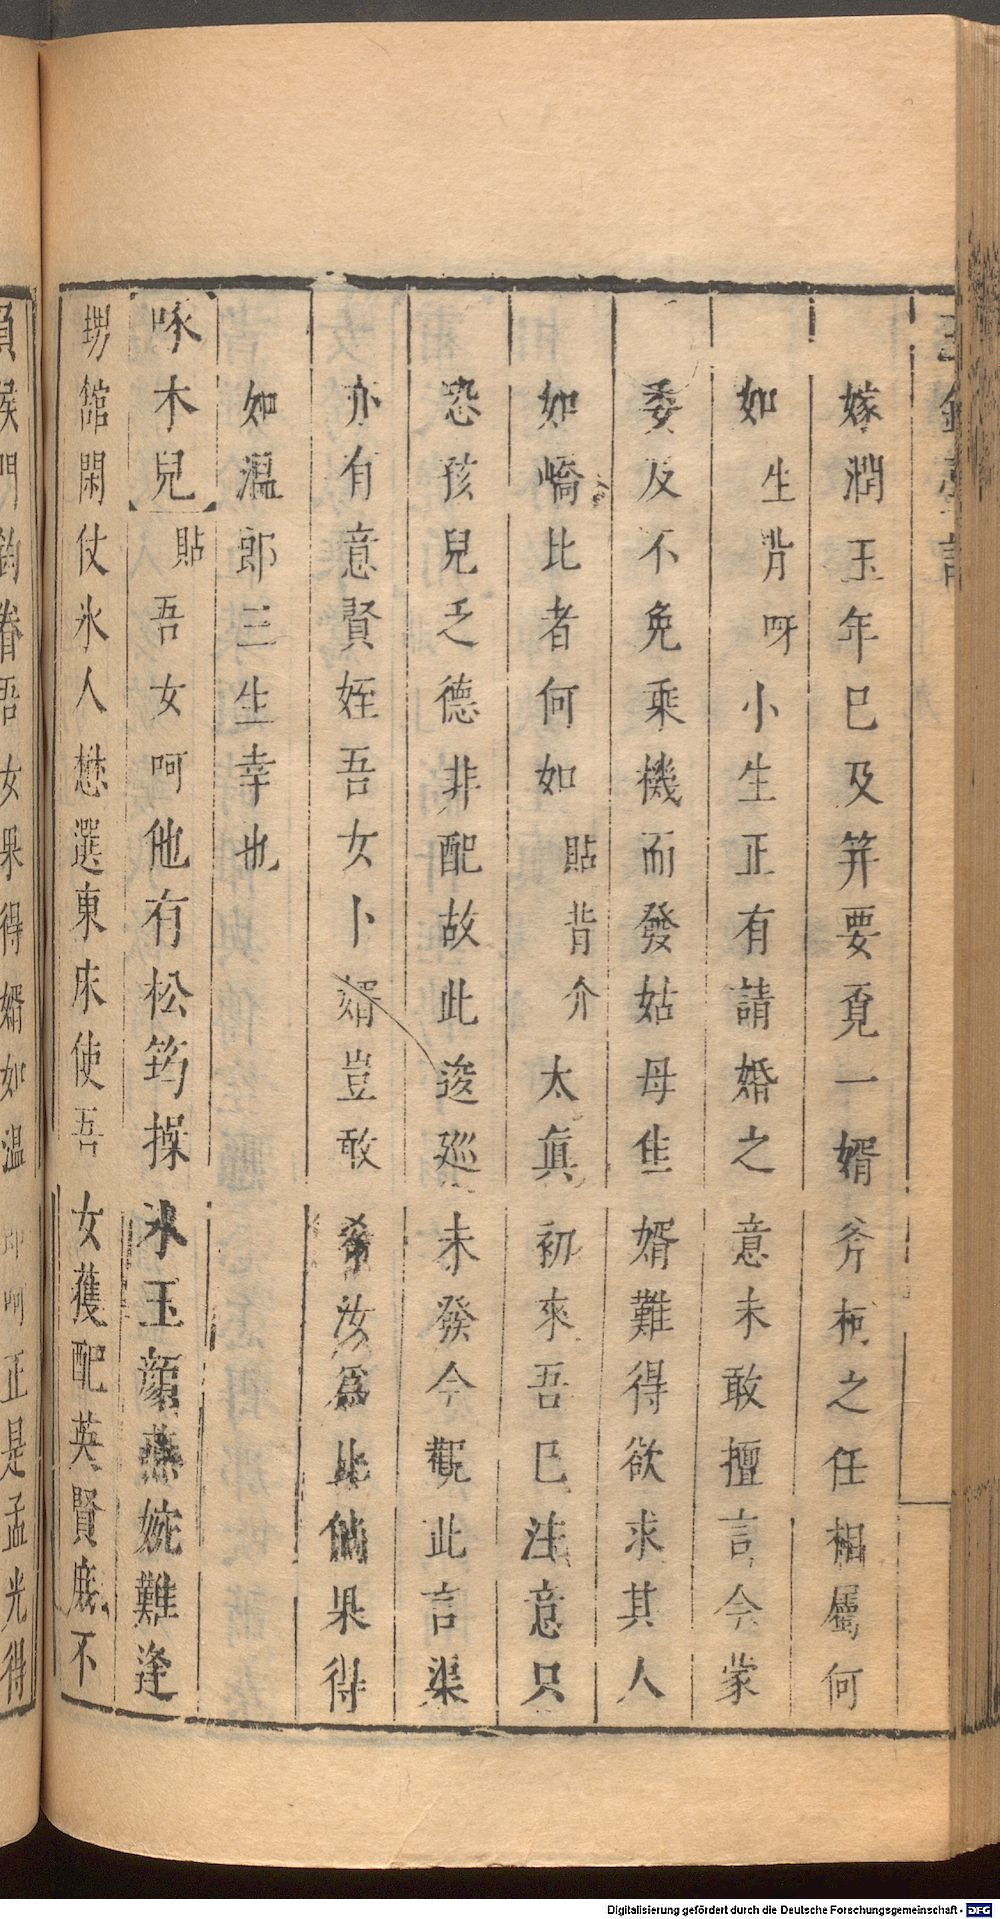 玉鏡臺記
嫁潤玉年已及笄要覓一婿斧柯之任相屬何
如生背呀小生正有請婚之意未敢擅言今蒙
委及不免乘機而發姑母佳婿難得欲求其人
如嶠比者何如貼背介太眞初來吾已注意只
恐孩兒乏德非配故此逡廵未發今觀此言渠
亦有意賢姪吾女卜婿豈敢希汝爲比倘果得
如溫郎三生幸也
啄木兒貼吾女呵他有松筠操氷玉顔燕婉難逢
甥舘閑仗氷人懋選東床使吾女獲配英賢底不
門鈞眷吾女果得婿如溫 呵正是孟光得
Digitalisierung gefördert durch die Deutsche Forschungsgemeinschaft - DFG